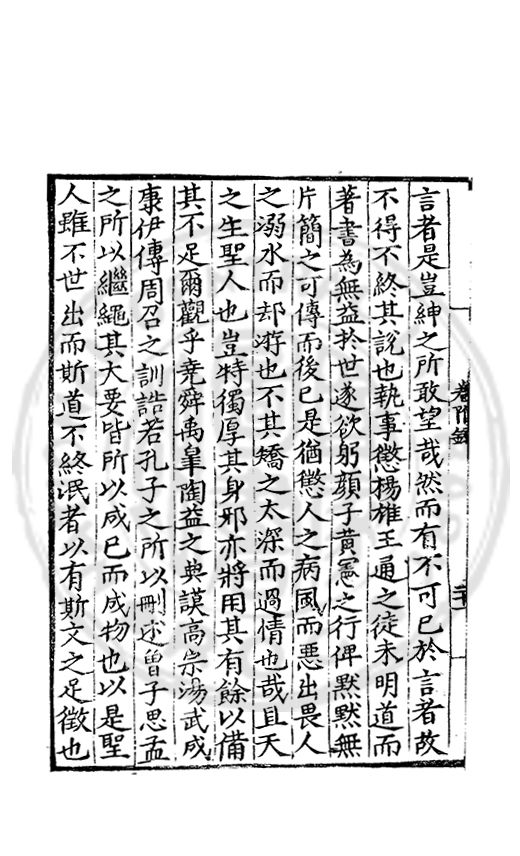 言者是豈紳之所敢望哉然而有不可已於言者故
不得不終其說也執事懲楊雄王通之徒未明道而
著書為無益於世遂欲躬顏子黃憲之行俾默默無
片簡之可傳而後已是猶懲人之病風而惡出畏人
之溺水而却游也不其矯之太深而過情也哉且天
之生聖人也豈特獨厚其身邪亦將用其有餘以備
其不足爾觀乎堯舜禹皐陶益之典謨高宗湯武成
康伊傅周召之訓誥若孔子之所以刪述曾子思孟
之所以繼繩其大要皆所以成已而成物也以是聖
人雖不世出而斯道不終泯者以有斯文之足徵也
卷附錄